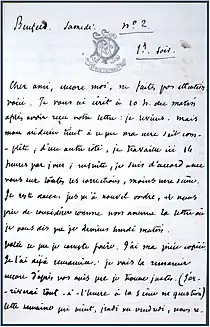 Renfeld. Samedi. n° 2
1h. soir.
Cher ami, encore moi, ne faites pas attention
voici. Je vous ai écrit à 10 h. du matin
après avoir reçu votre lettre : je reviens. mais
mon médecin tient à ce que ma cure soit com-
plète ; d'un autre côté, je travaille ici 14
heures par jour ; ensuite, je suis d'accord avec
vous sur toutes les corrections, moins une scène.
Je reste donc. jusqu'à nouvel ordre, et vous
prie de considérer comme non avenue la lettre où
je vous dis que je serais lundi matin.
Voilà ce que je compte faire. J'ai ma pièce copiée
Je l'ai déjà remaniée. je vais la remanier
encore d'après vos avis que je trouve justes. (J'ar-
riverai tout-à-l'heure à la scène en question)
cette semaine qui vient, jeudi ou vendredi, vous re-